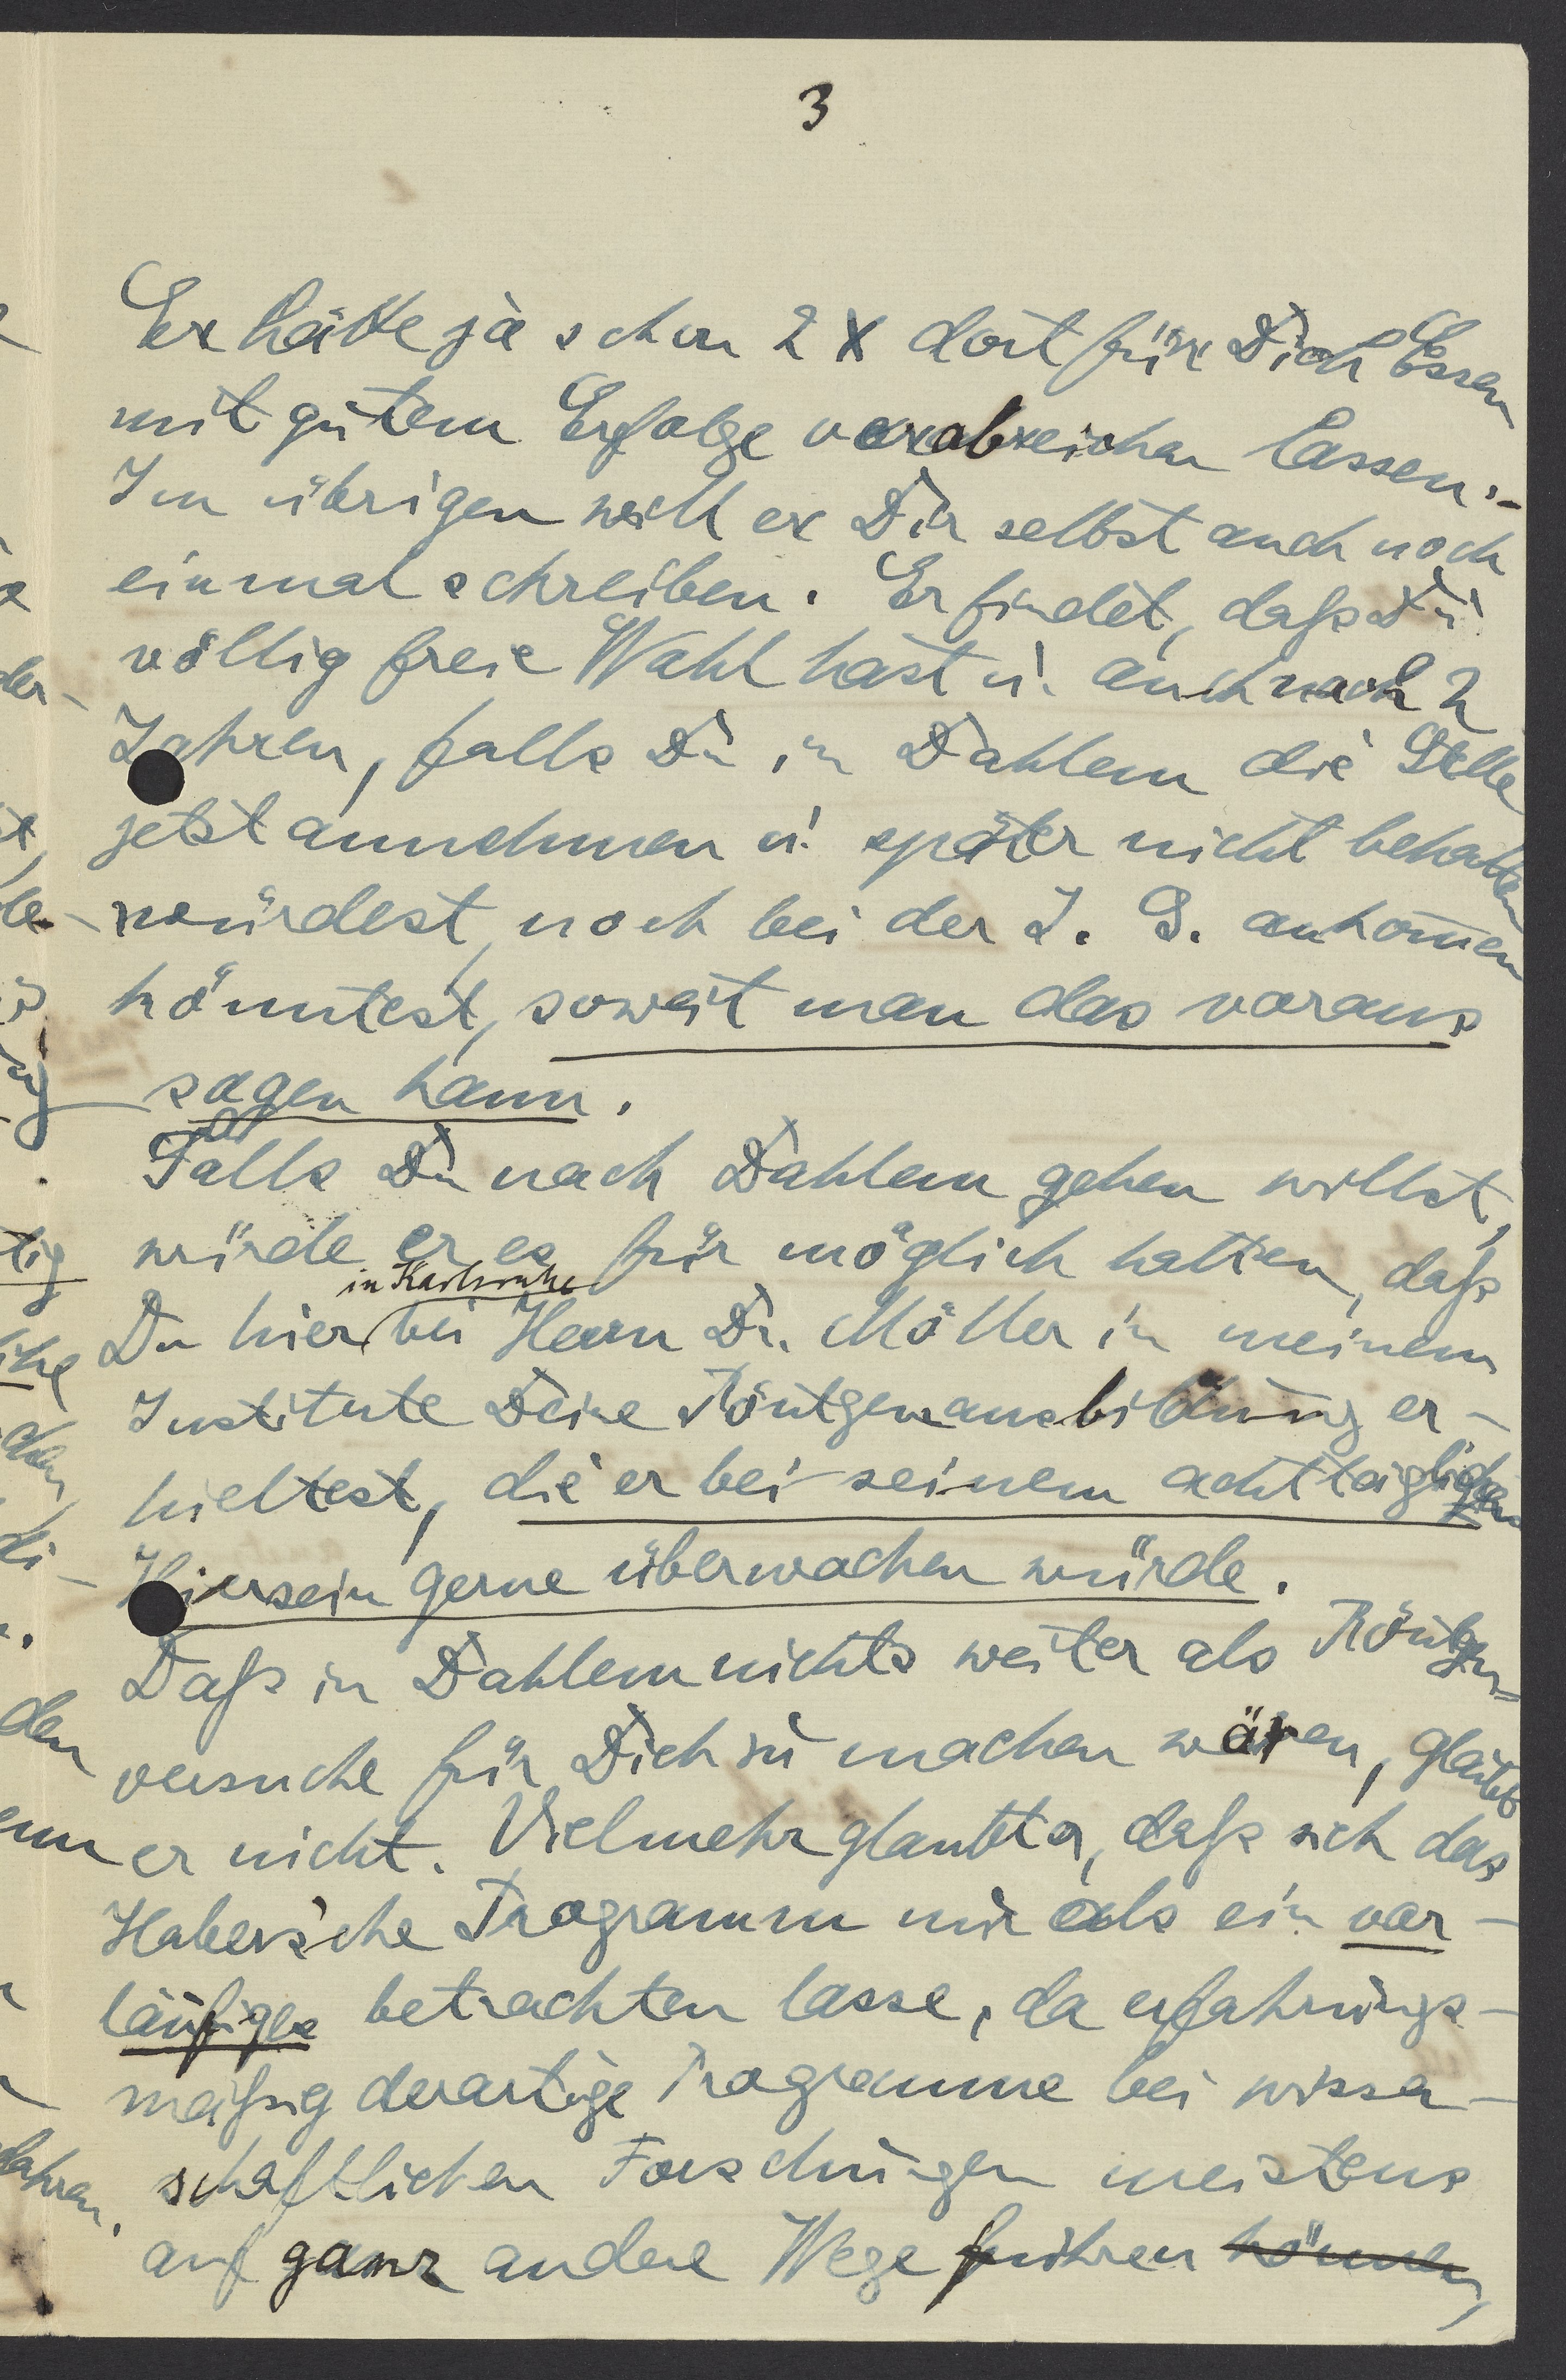 3
Er hätte ja schon 2 X dort für Dich Essen
mit gutem Erfolge verabreichen lassen.–
Im übrigen will er Dir selbst auch noch
einmal schreiben. Er findet, daß Du
völlig freie Wahl hast u. auch nach 2
Jahren, falls Du in Dahlem die Stelle
jetzt annehmen u. später nicht behalten
würdest, noch bei der I. G. ankom̄en
könntest, soweit man das voraus
sagen kann.
Falls Du nach Dahlem gehen willst,
würde er es für möglich halten, daß
in Karlsruhe
Du hier bei Herrn Dr. Möller in meinem
Institute Deine Röntgenausbildung er-
hieltest, die er bei seinem achttäglichen
Hiersein gerne überwachen würde.
Daß in Dahlem nichts weiter als Röntgen=
versuche für Dich zu machen wären, glaubt
er nicht. Vielmehr glaubt er, daß sich das
Haber'sche Programm nur als ein vor-
läufiges betrachten lasse, da erfahrungs-
mäßig derartige Programme bei wissen-
schaftlichen Forschungen meistens
auf ganz andere Wege führen können,